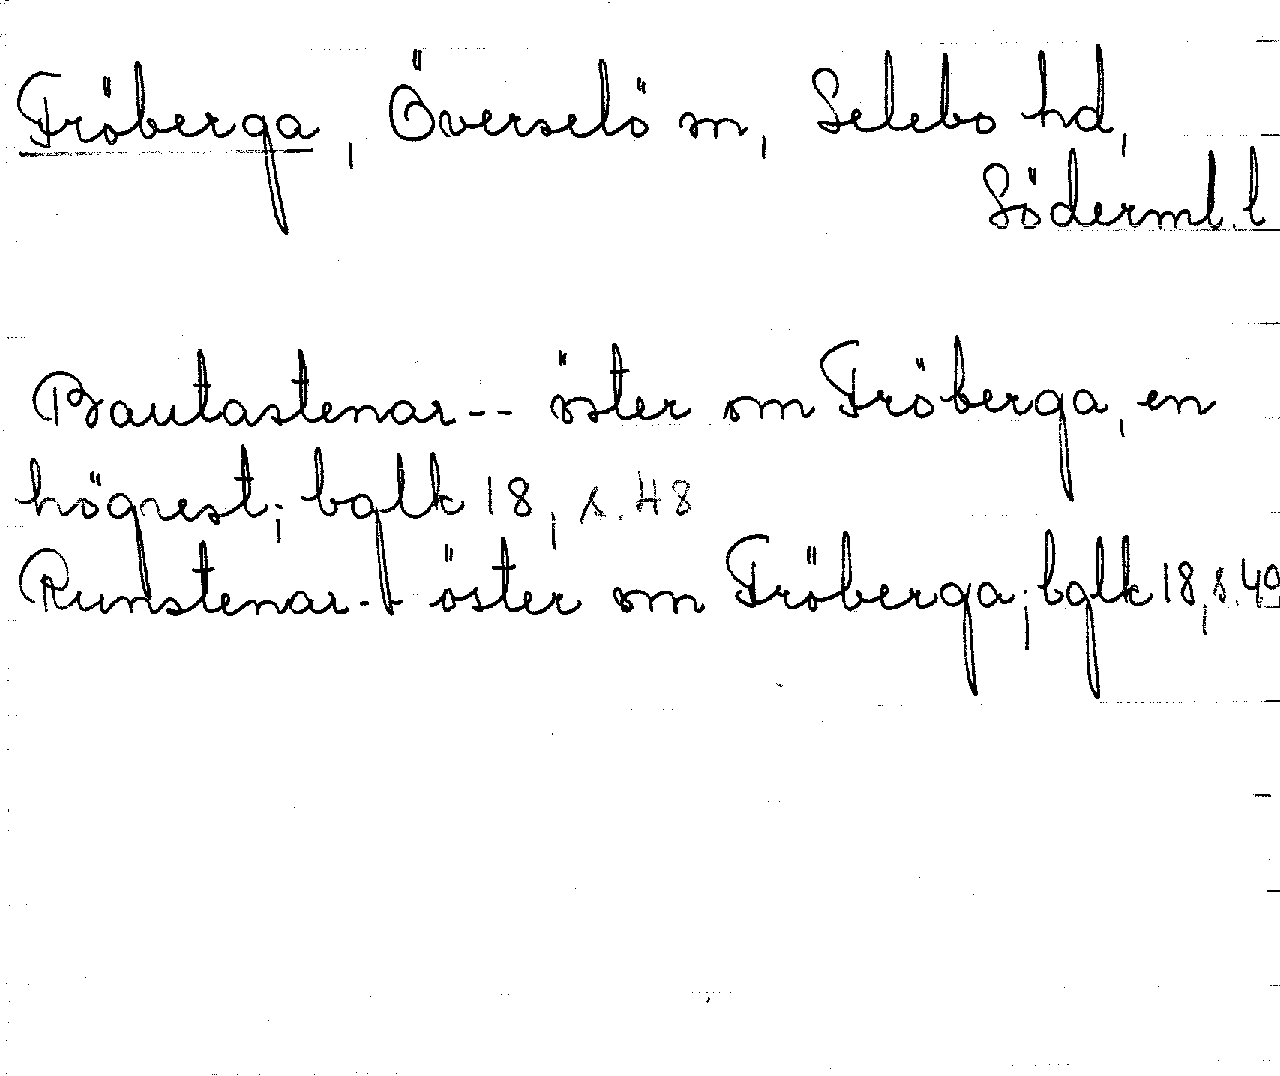 Fröberga, Överselö sn, Selebo hd,
Söderml. l
Bautastenar -- öster om Fröberga, en
högrest; bglk 18, s. 48
Runstenar -- öster om Fröberga; bglk 18, s. 49